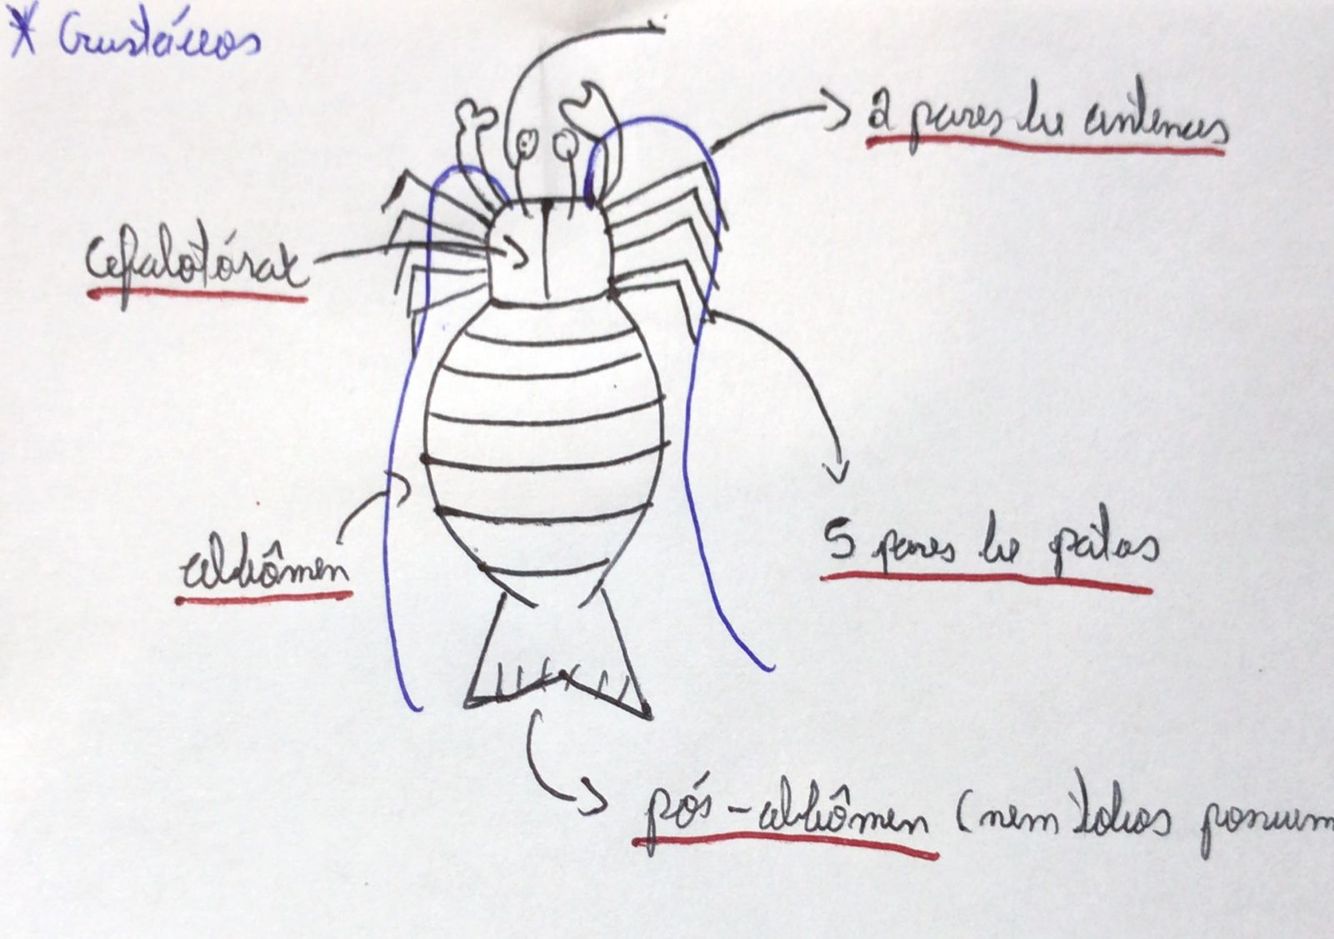 * Crustáceos
2 pares de antenas
cefalotórax
5 pares de patas
abdômen
pós-abdômen (nem todos possuem